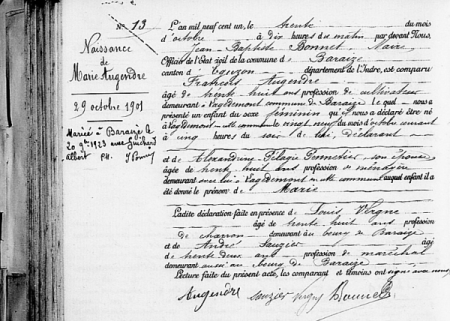 N° 13
Naissance
de
Marie Augendre
29 octobre 1901
Marié à Baraize le
20 9bre 1923 avec Guilhard
Albert
L'an mil neuf cent un, le trente du mois
d'octobre à dix heures du matin par devant Nous,
Jean-Baptiste Bonnet, Maire
Officier de l'État civil de la commune de Baraize
canton d'Eguzon département de l'Indre, est comparu
François Augendre
âgé de trente huit ans profession de cultivateur
demeurant à commune de Baraize Lequel nous a
présenté un enfant du sexe féminin qu'il nous a déclaré être né
à commune le vingt neuf du mois d'octobre courant
à cinq heures du soir de lui, déclarant
et de Alexandrine Pélagie son épouse
âgée de trente huit ans profession de ménagère
demeurant avec lui commune auquel enfant il a
été donné le prénom de Marie
Ladite déclaration faite en présence de Louis Vergne
âgé de trente huit ans profession
de charron demeurant au bourg de Baraize
et de André Sauzier âgé
de trente deux ans profession de maréchal
demeurant aussi au bourg de Baraize
Lecture faite du présent acte, les comparant et témoins ont signé avec nous
Augendre Sauzier Vergne Bonnet